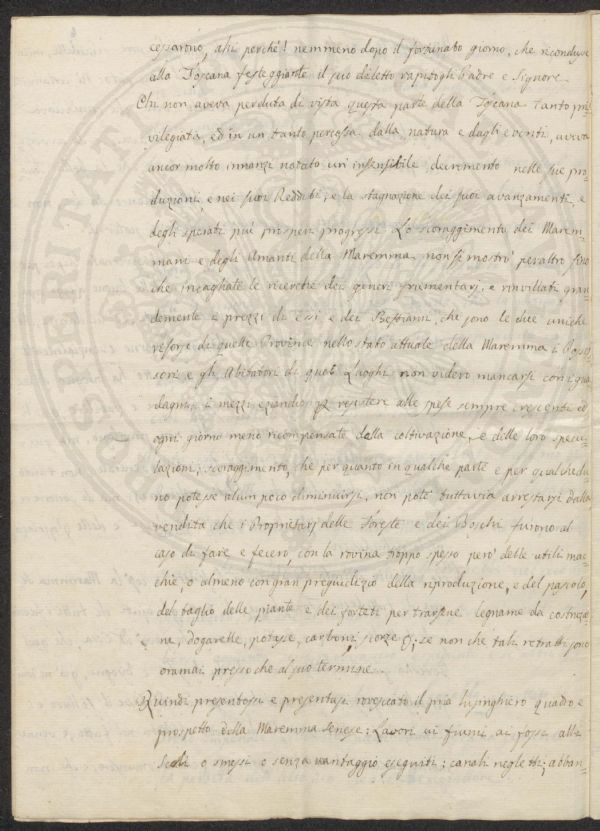 cessarono, ahi perché! nemmeno dopo il fortunato giorno, che ricondusse
alla Toscana festeggiante il suo diletto rapitogli Padre e Signore.
Chi non aveva perduta di vista questa parte della Toscana tanto pri-
vilegiata, ed in un tanto percossa dalla natura e dagli eventi, aveva
ancor molto innanzi notato un' insensibile decremento nelle sue pro-
duzioni, e nei suoi Redditi, e la stagnazione dei suoi avanzamenti e
degli sperati più prosperi progressi. Lo scoraggimento dei Marem-
mani e degli Amanti della Maremma non si mostrò peraltro fino
che incagliate le ricerche dei generi frumentarj, e rinviliati gran-
demente i prezzi di essi e dei Bestiami, che sono le due uniche
risorse di quelle Provincie nello stato attuale della Maremma i Posses-
sori e gli Abitatori di quei Luoghi non videro mancarsi con i gua-
dagni i mezzi eziandio p resistere alle spese sempre crescenti ed
ogni giorno meno ricompensate dalla coltivazione, e delle loro specu-
lazioni; scoraggimento, che per quanto in qualche parte e per qualchedu-
no potesse alcun poco diminuirsi, non potè tuttavia arrestarsi dalla
vendita che i Proprietarj delle Foreste e dei Boschi furono al
caso di fare e fecero, con la rovina troppo spesso però delle utili mac-
chie, o almeno con gran pregiudizio della riproduzione, e del pascolo,
del taglio delle piante e dei forteti per trarsene legname da costruzio-
ne, dogarelle, potasse, carboni, scorze &; se non che tali retratti sono
oramai presso che al suo termine.
Quindi presentossi e presentasi rovesciato il pria lusinghiero quadro e
prospetto della Maremma Senese: Lavori ai fiumi ai fossi alli
scoli o smessi o senza vantaggio eseguiti: canali negletti; abban-